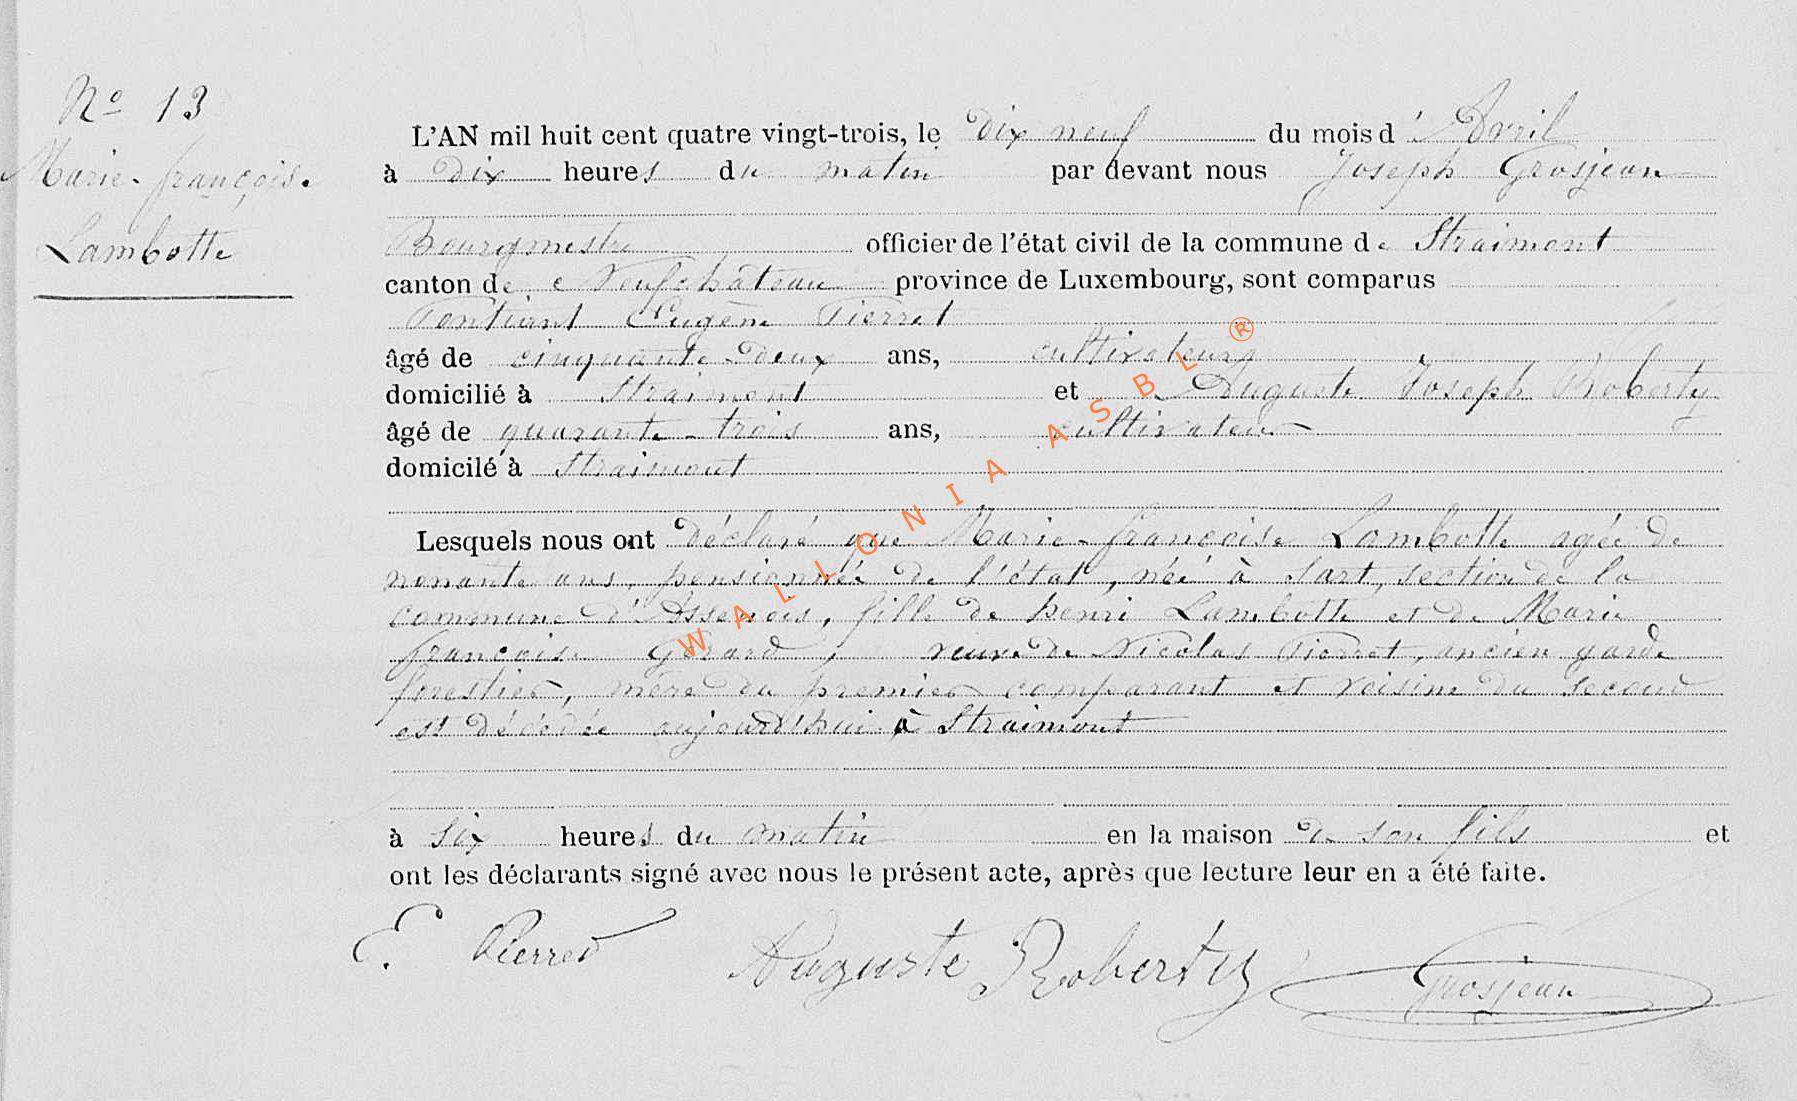 Nº 13
Marie-françoise
Lambotte
L'AN mil huit cent quatre vingt-trois, le dix neuf du mois d'Avril
à dix heures du matin par devant nous Joseph Grosjean
Bourgmestre officier de l'état civil de la commune de Straimont
canton de Neufchâteau province de Luxembourg, sont comparus
Eugène Pierret
âgé de cinquante-deux ans, cultivateur
domicilié à Straimont et Auguste Joseph Roberty
âgé de quarante-trois ans, cultivateur
domicilé à Straimont
Lesquels nous ont déclaré que Marie-françoise Lambotte agée de
nonante ans, pensionnée de l'état, née à Sart, section de la
commune d'Assenois, fille de henri Lambotte et de Marie
françoise Gérard, veuve de Nicolas Pierret, ancien garde
forestier, mère du premier comparant et voisine du second
est décédée aujourd'hui à Straimont
à six heures du matin en la maison de son fils et
ont les déclarants signé avec nous le présent acte, après que lecture leur en a été faite.
E. Pierret Auguste Roberty Grosjean
WALLONIA ASBL ®